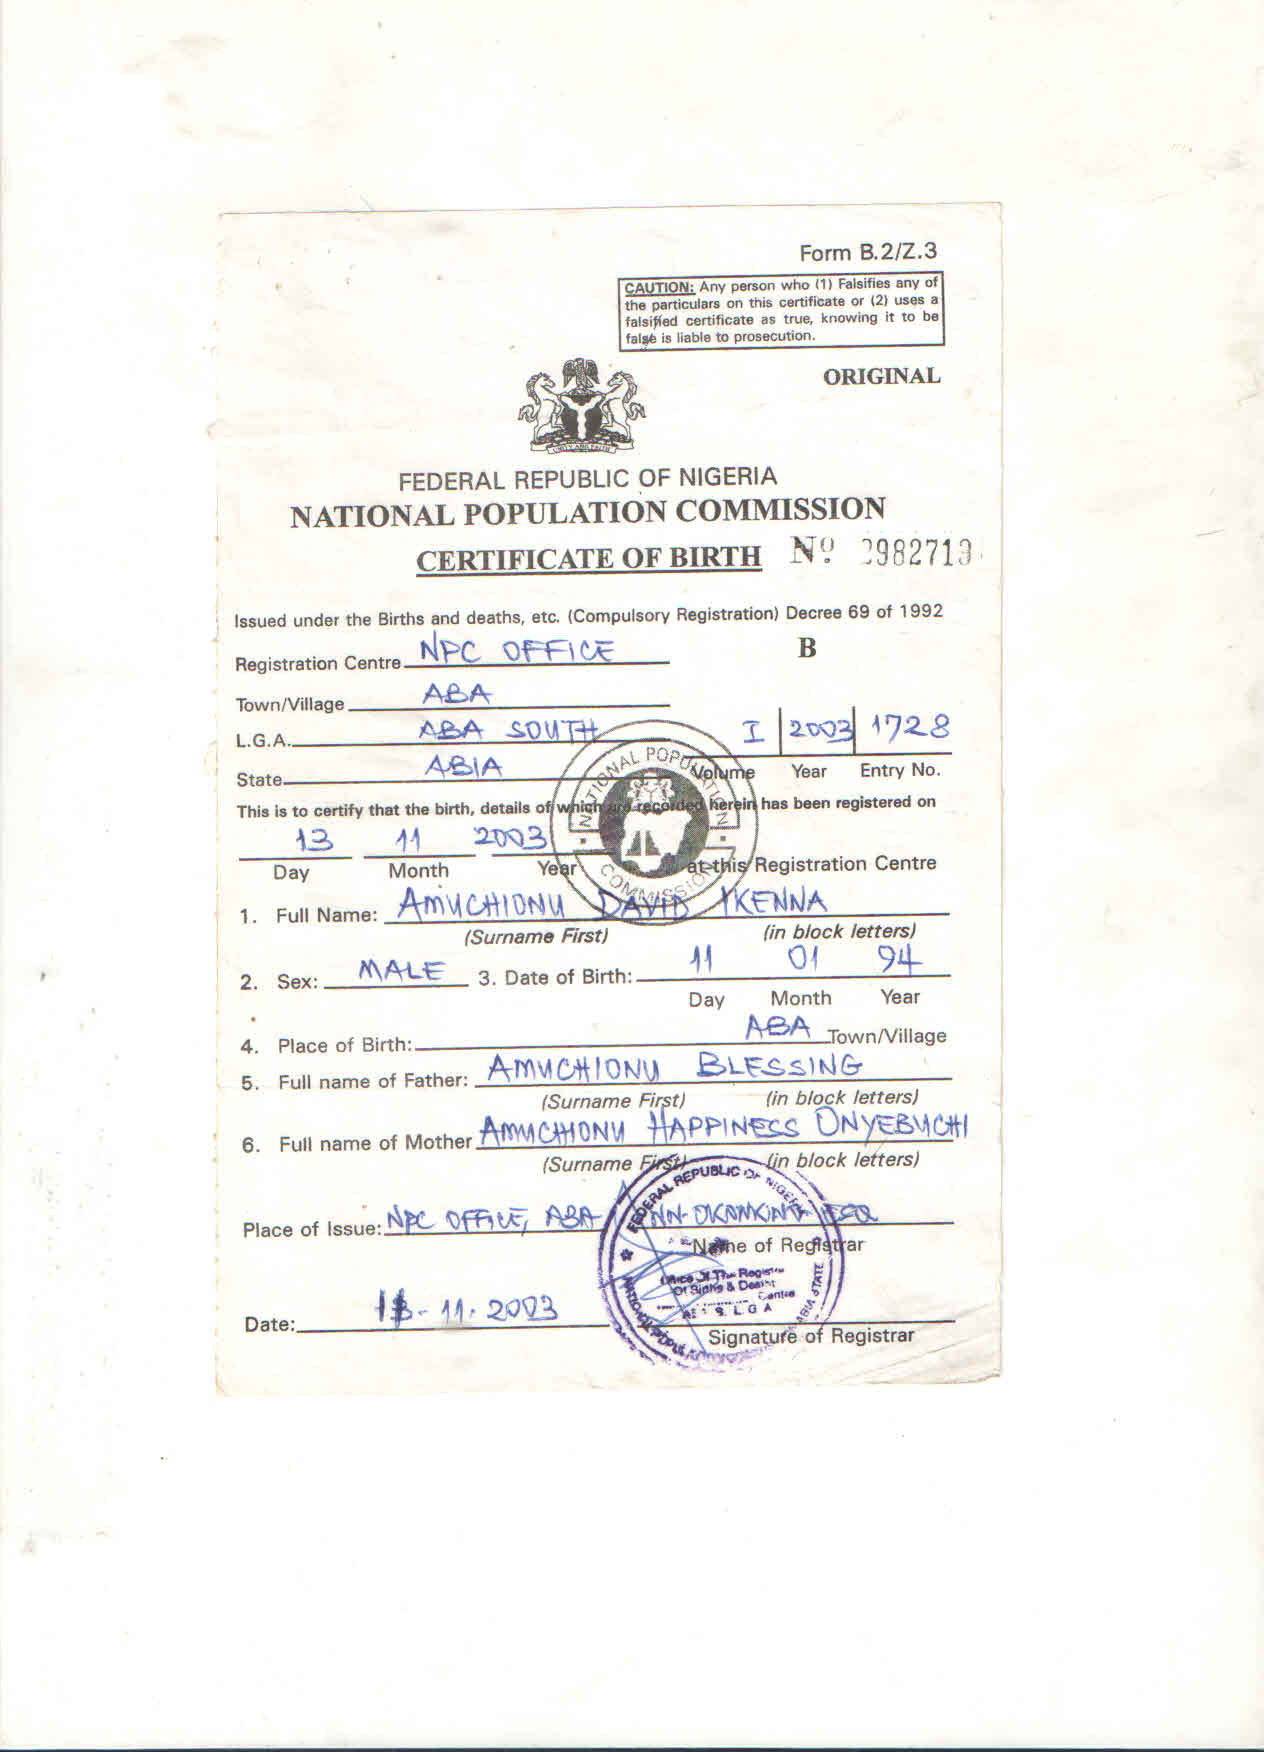 Form B.2/Z.3
CAUTION: Any person who (1) Falsifies any of
the particulars on this certificate or (2) uses a
falsified certificate as true, knowing it to be
false is liable to prosecution.
ORIGINAL
UNITY AND FAITH
FEDERAL REPUBLIC OF NIGERIA
NATIONAL POPULATION COMMISSION
CERTIFICATE OF BIRTH No
Issued under the Births and deaths, etc. (Compulsory Registration) Decree 69 of 1992
Registration Centre NPC OFFICE B
Town/Village ABA
L.G.A. ABA SOUTH I 2003 1728
State ABIA Volume Year Entry No.
This is to certify that the birth, details of which are recorded herein has been registered on
13 11 2003
Day Month Year at this Registration Centre
NATIONAL POPULATION COMMISSION
1. Full Name: AMUCHIONU DAVID IKENNA
(Surname First) (in block letters)
2. Sex: MALE 3. Date of Birth: 11 01 94
Day Month Year
4. Place of Birth: ABA Town/Village
5. Full name of Father: AMUCHIONU BLESSING
(Surname First) (in block letters)
6. Full name of Mother AMUCHIONU HAPPINESS ONYEBUCHI
(Surname First) (in block letters)
Place of Issue: NPC OFFICE, ABA ESQ
Name of Registrar
FEDERAL REPUBLIC OF NIGERIA
Office Of The Registrar
Of Births & Deaths
Centre
S. L. G. A
ABIA STATE
Date: 13-11-2003
Signature of Registrar